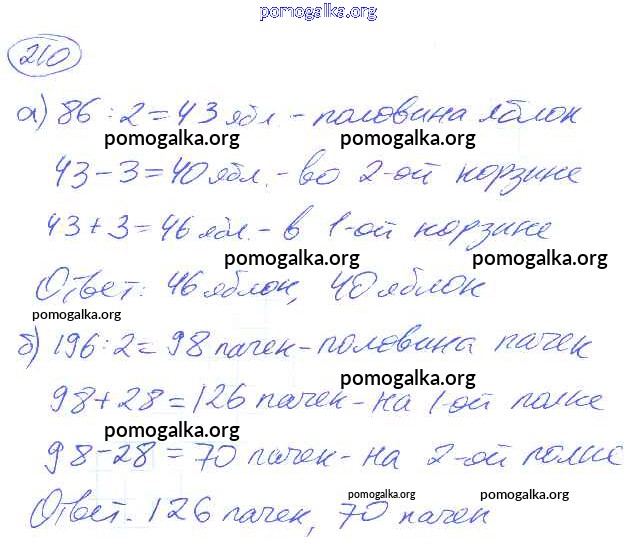 pomogalka.org
210
а) 86 : 2 = 43 ябл. - половина яблок
pomogalka.org pomogalka.org
43 - 3 = 40 ябл. - во 2-ой корзине
43 + 3 = 46 ябл. - в 1-ой корзине
pomogalka.org pomogalka.org
Ответ: 46 яблок, 40 яблок
pomogalka.org
б) 196 : 2 = 98 пачек - половина пачек
pomogalka.org
98 + 28 = 126 пачек - на 1-ой полке
pomogalka.org
98 - 28 = 70 пачек - на 2-ой полке
pomogalka.org pomogalka.org
Ответ. 126 пачек, 70 пачек